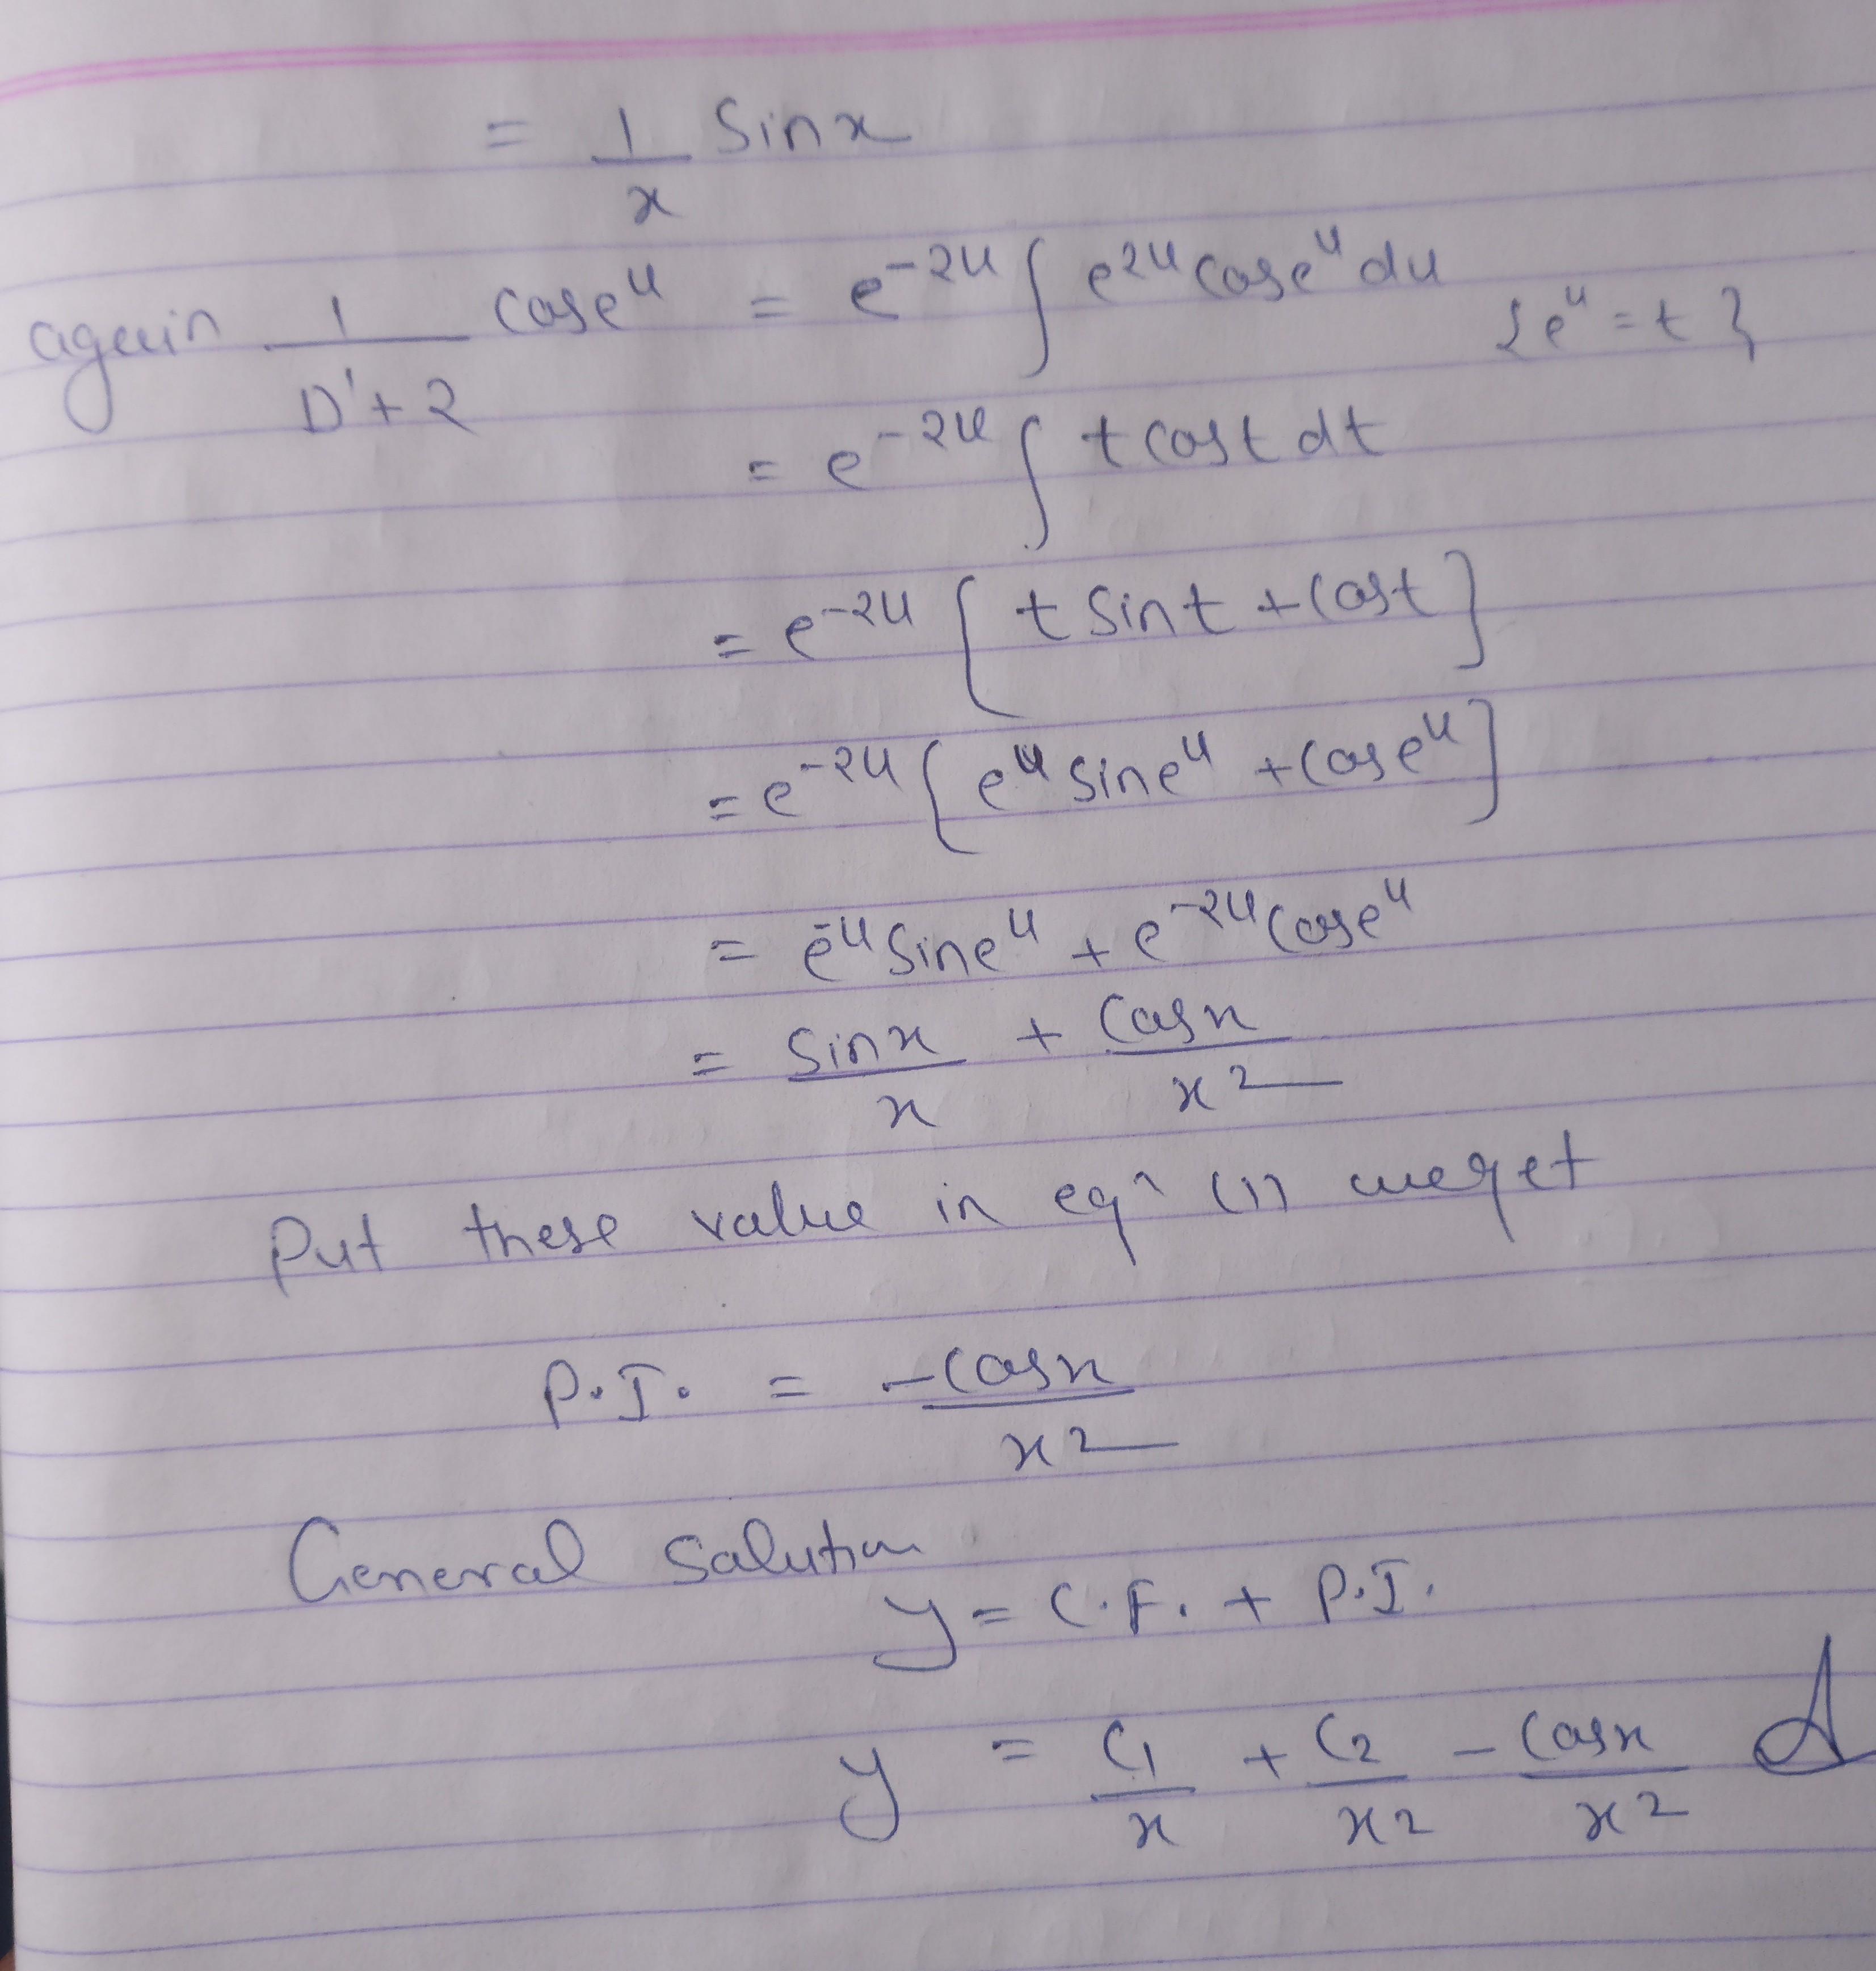 = 1/x Sinx
again 1/(D'+2) cose^u = e^-2u ∫ e^2u cose^u du {e^u = t}
= e^-2u ∫ t cost dt
= e^-2u [t Sint + cost]
= e^-2u [e^u Sine^u + cose^u]
= e^-u Sine^u + e^-2u cose^u
= Sinx/x + Cosx/x^2
Put these value in eq^n (1) we get
P.I. = -Cosx/x^2
General Solution
y = C.F. + P.I.
y = C1/x + C2/x^2 - Cosx/x^2